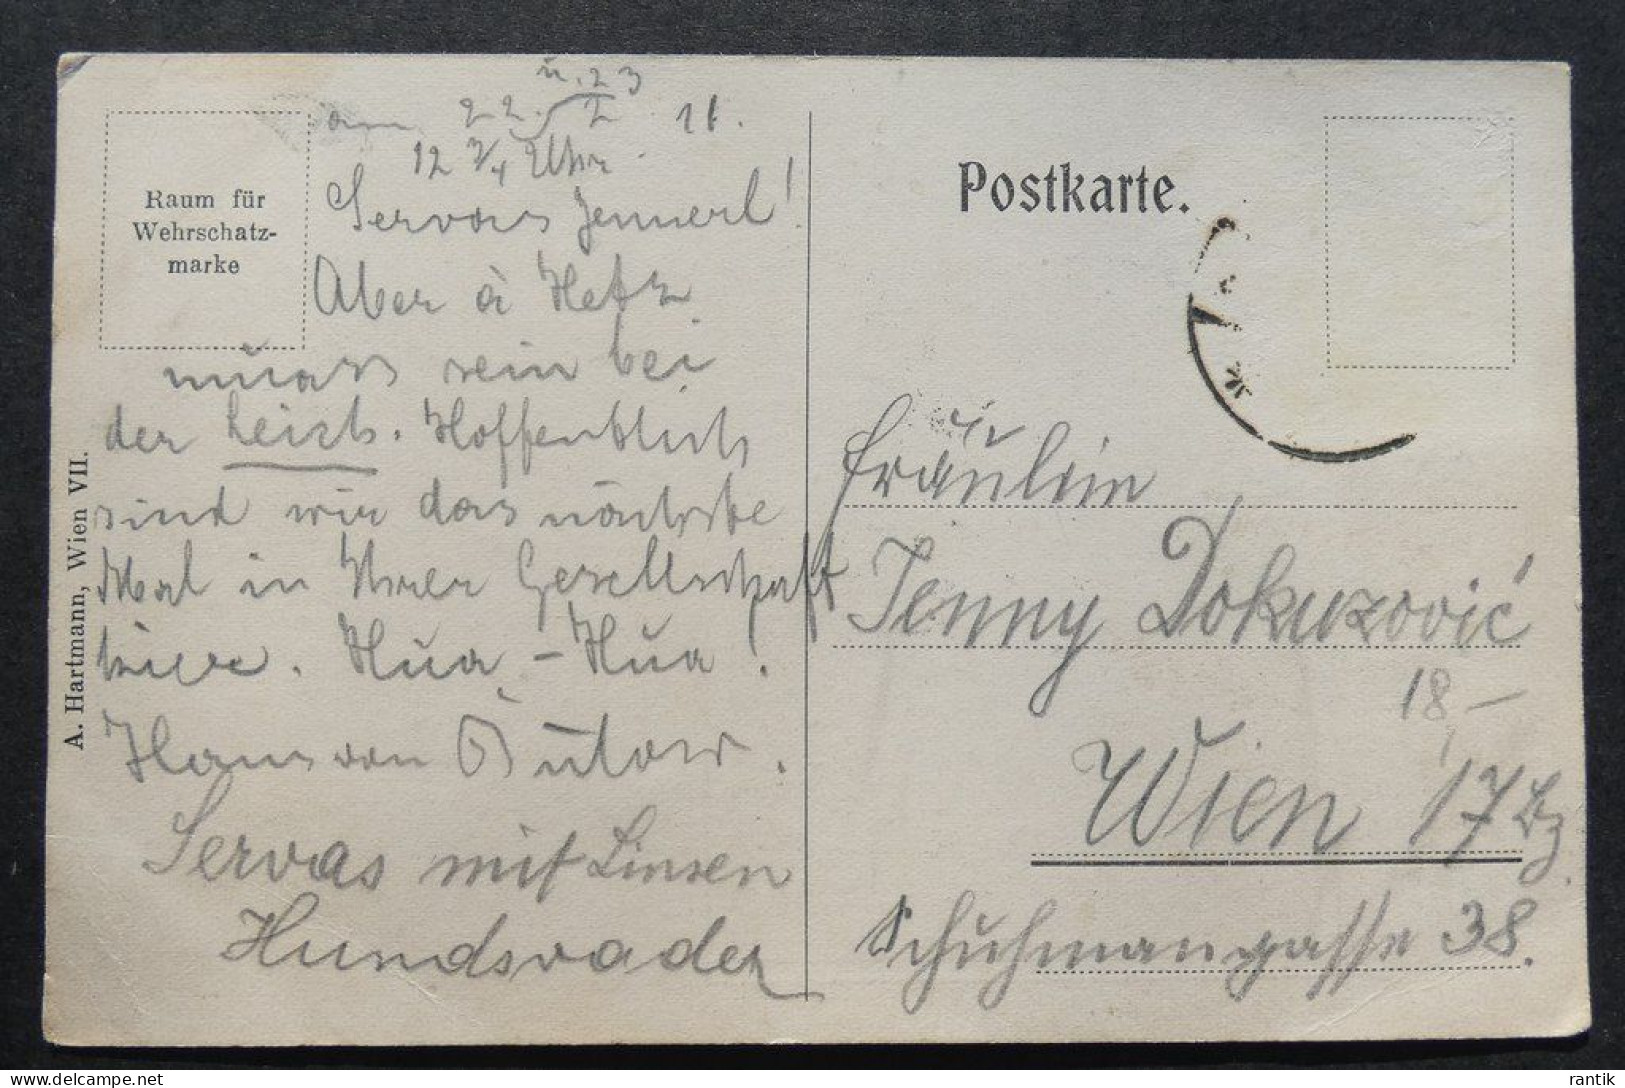 am 22. u. 23 2 11.
12 3/4 Uhr.
Servas Jennerl!
Aber à Hetz
muass sein bei
der Leich. Hoffentlich
sind wir das nächste
Mal in Ihrer Gesellschaft
hier. Hua-Hua!
Hans von Bülow.
Servas mit Linsen
Hundsvader
Raum für
Wehrschatz-
marke
A. Hartmann, Wien VII.
Postkarte.
Fräulein
Jenny Dokuzović
18,-
Wien 17 Bz.
Schuhmangasse 38.
rantik